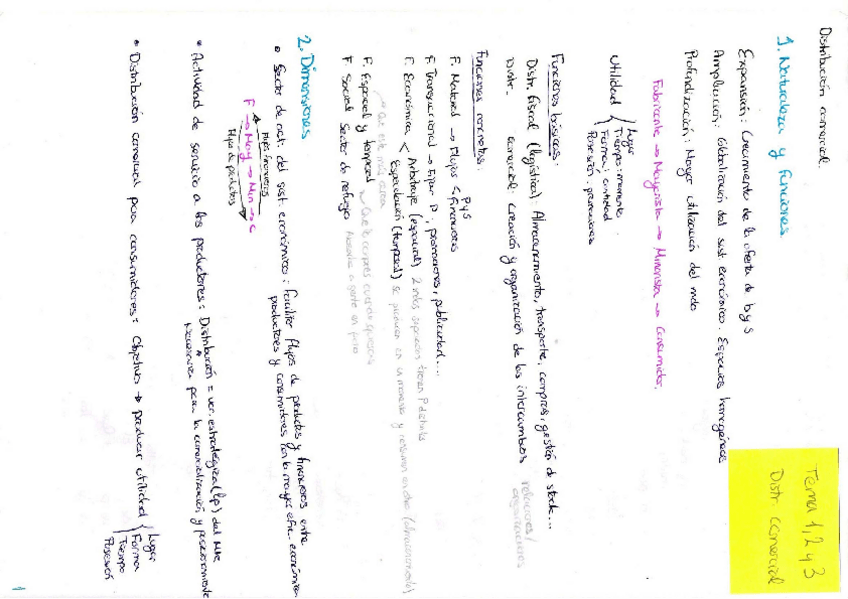 Distribución comercial.
Tema 1, 2 y 3
Distr. Comercial
1. Naturaleza y funciones.
Expansión: Crecimiento de la oferta de b y s
Ampliación: Globalización del sist. económico. Espacios homogéneos
Profundización: Mayor utilización del mdo
Fabricante → Mayorista → Minorista → Consumidor.
Utilidad
Lugar
Tiempo: momento
Forma: cantidad
Posesión: promociones
Funciones básicas:
Distr. física (logística): Almacenamiento, transporte, compras, gestión de stock...
Distr. comercial: creación y organización de los intercambios relaciones/
organizaciones
Funciones concretas:
F. Material → Flujos
P y S
financieros
F. Transaccional → Fijar P, promociones, publicidad....
F. Económica
Arbitraje (espacial) 2 mdos separados tienen P distinta
Especulación (temporal) se producen en un momento y se consumen en otro (almacenamiento)
F. Espacial y temporal
Que esté más cerca
Que lo compres cuando quieras
F. Social Sector de refugio Absorbe a gente en paro
2. Dimensiones
• Sector de act. del sist. económico: facilitar flujos de productos y financieros entre
productores y consumidores con la mayor efic. económica
Flujos financieros
F → May → Min → C
Flujos de productos
• Actividad de servicio a los productores: Distribución = var. estratégica (lp) del Mk
Necesaria para la comercialización y posicionamiento
• Distribución comercial para consumidores: Objetivo → producir utilidad
Lugar
Forma
Tiempo
Posesión
1